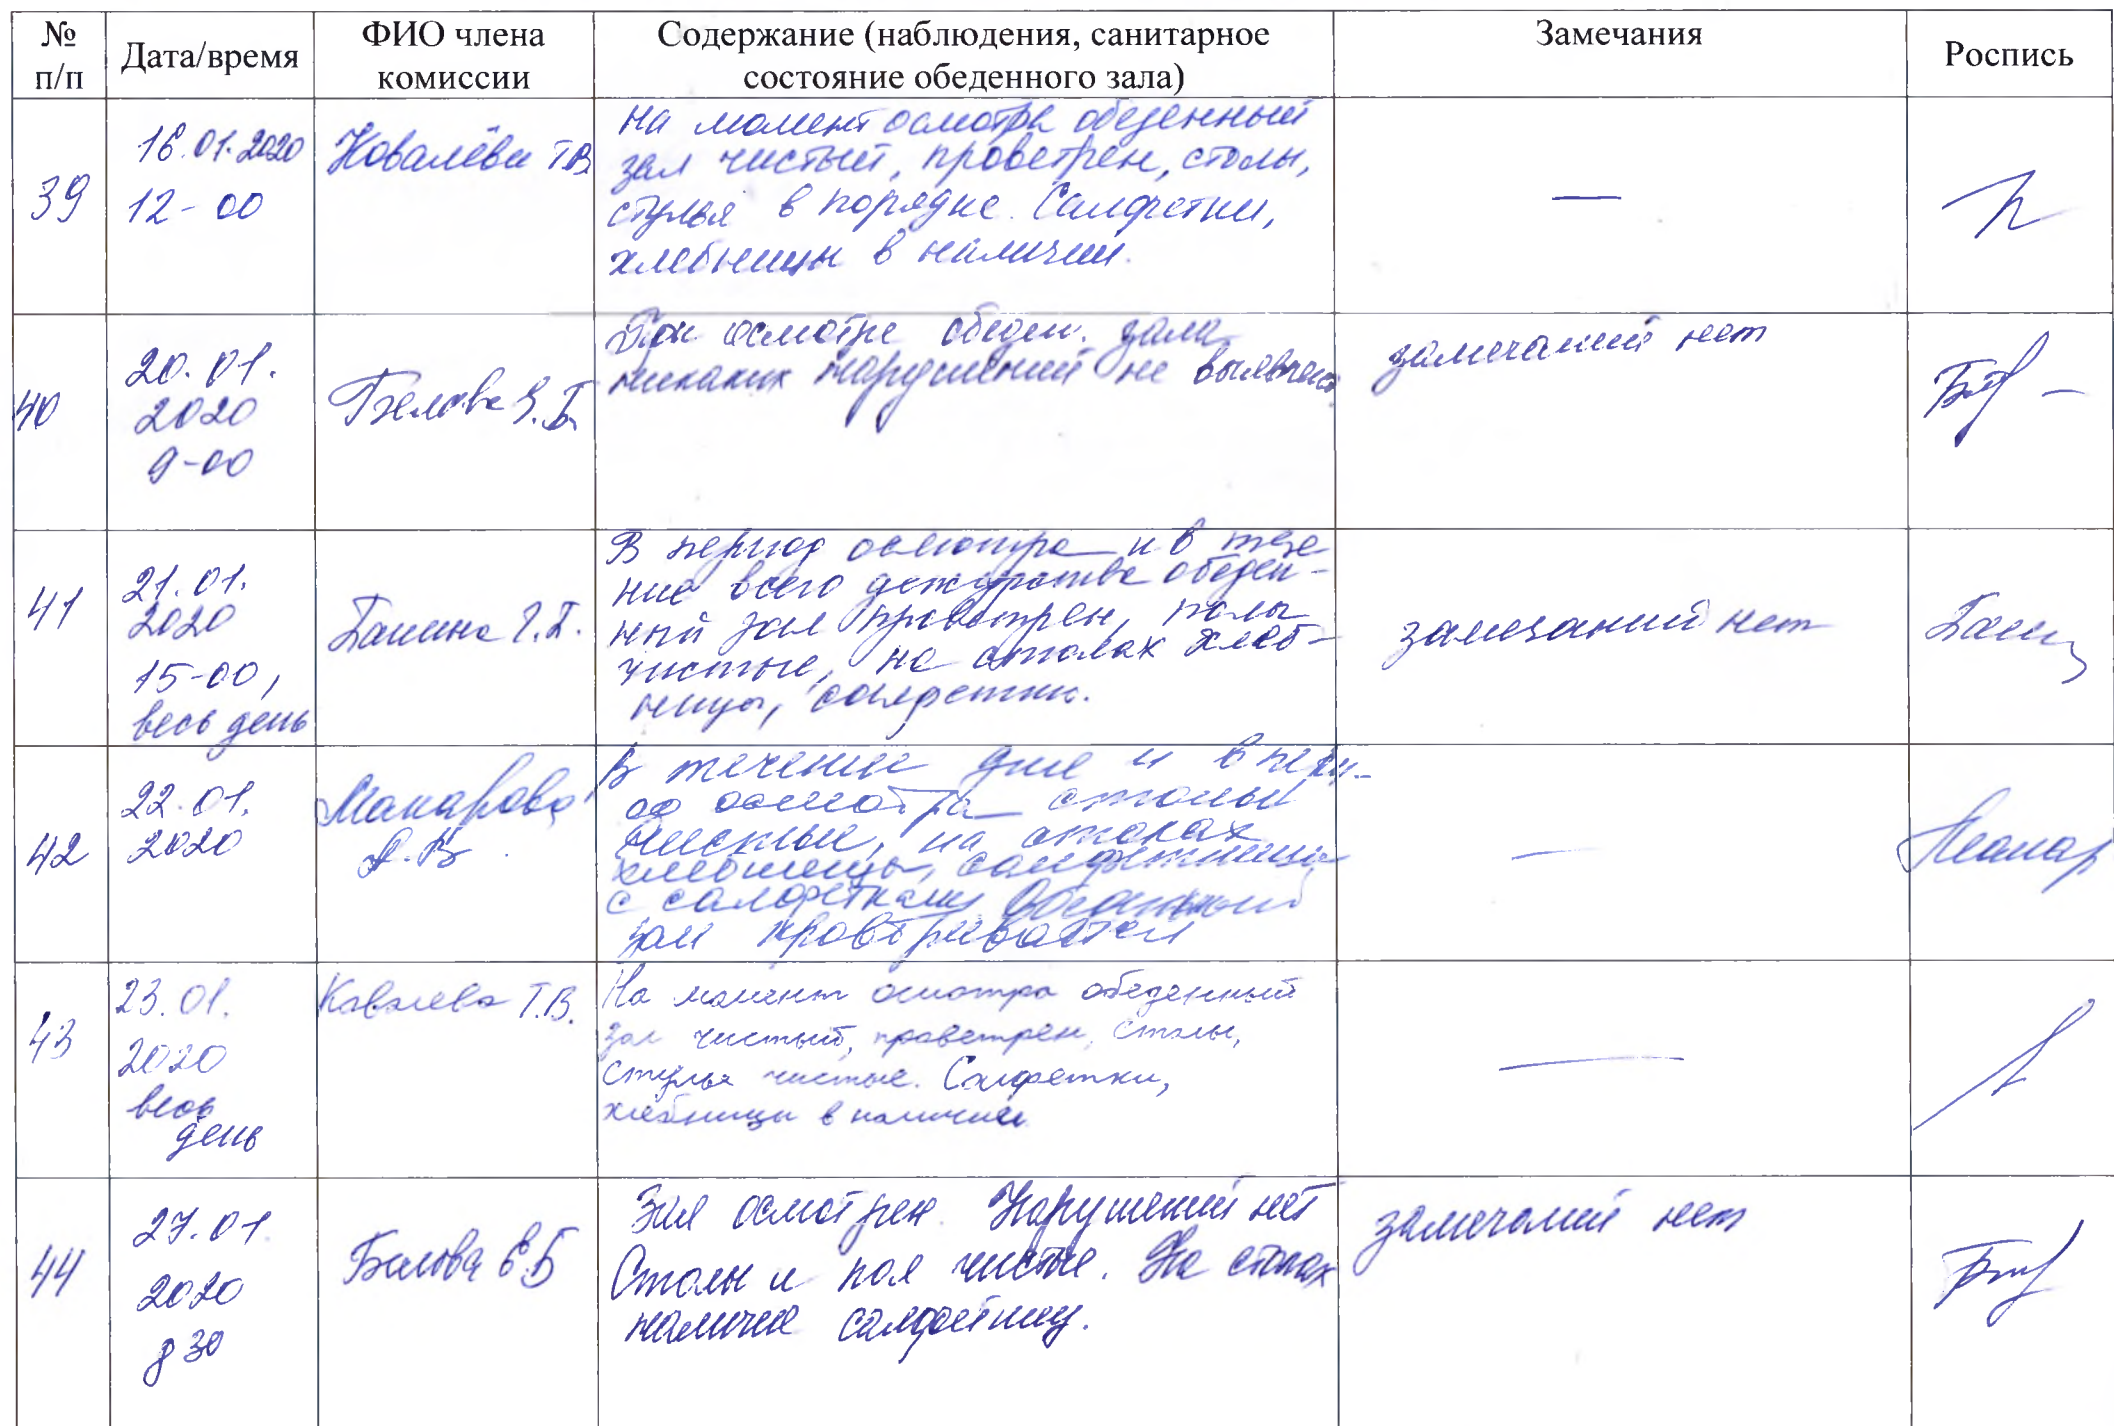 № п/п
Дата/время
ФИО члена
комиссии
Содержание (наблюдения, санитарное
состояние обеденного зала)
Замечания
Роспись
39
16.01.2020
12-00
Ковалёва Т.В.
на момент осмотра обеденный
зал чистый, проветрен, столы,
стулья в порядке. Салфетки,
хлебницы в наличии.
—
40
20.01.
2020
9-00
Белова Е.Б.
При осмотре обеден. зала
никаких нарушений не выявлено
замечаний нет
41
21.01.
2020
15-00,
весь день
Г.Б.
В период осмотра и в тече-
ние всего дежурства обеден-
ный зал проветрен, полы
чистые, на столах хлеб-
ницы, салфетки.
замечаний нет
42
22.01.
2020
Макарова
А.В.
В течение дня и в пери-
од осмотра столы
чистые, на столах
хлебницы, салфетницы
с салфетками Обеденный
зал проветривается
—
Макар
43
23.01.
2020
весь
день
Ковалева Т.В.
На момент осмотра обеденный
зал чистый, проветрен, столы,
стулья чистые. Салфетки,
хлебницы в наличии
—
44
27.01
2020
8 30
Белова Е.Б
Зал осмотрен. Нарушений нет
Столы и пол чистые. На столах
наличие салфетниц.
замечаний нет